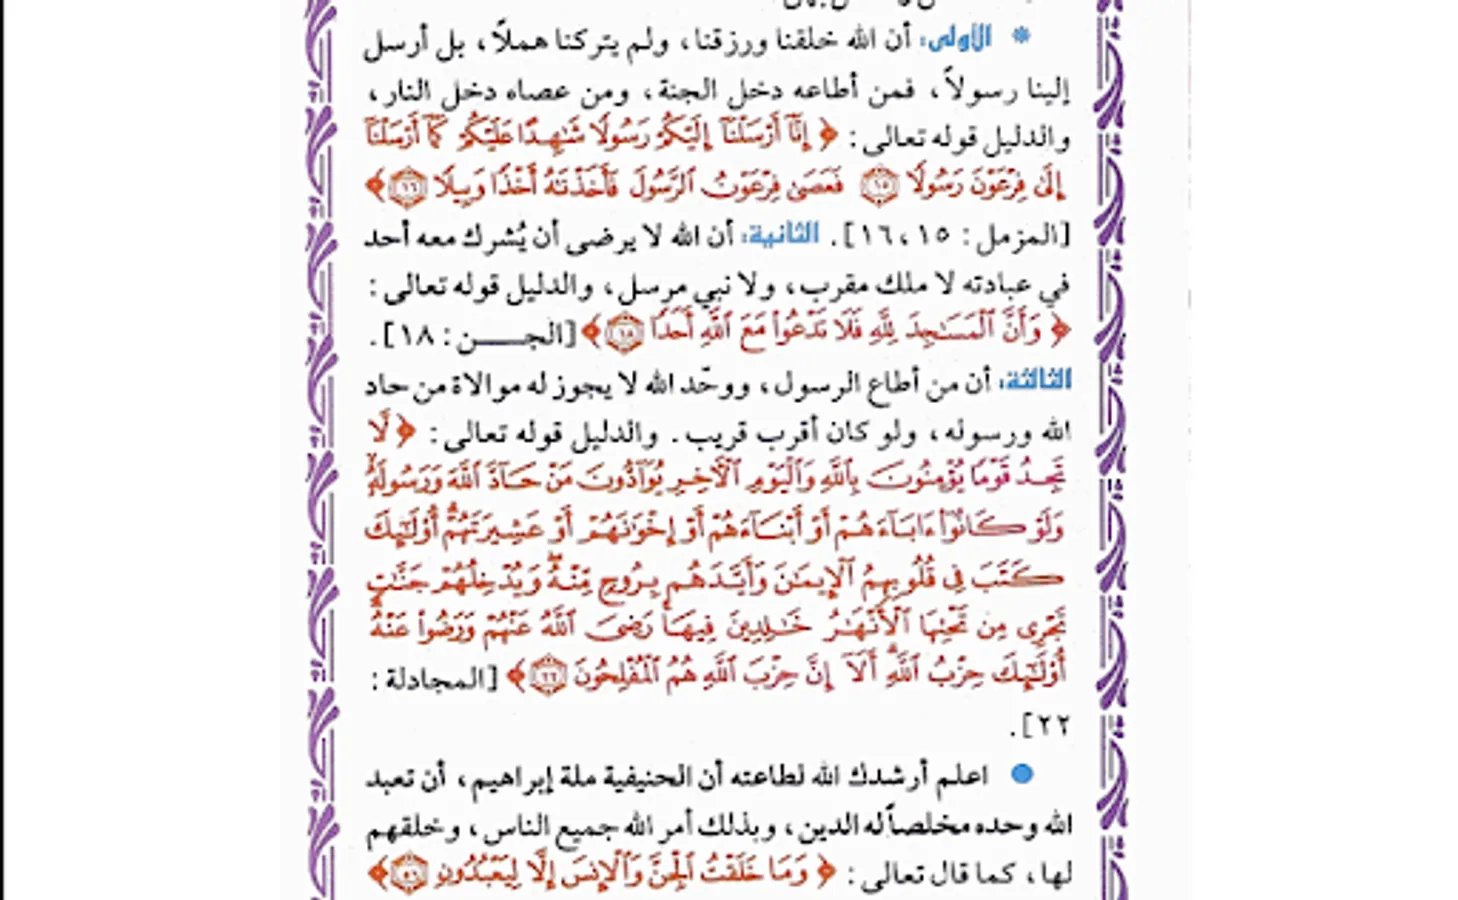 * الأولى: أن الله خلقنا ورزقنا، ولم يتركنا هملاً، بل أرسل
إلينا رسولاً، فمن أطاعه دخل الجنة، ومن عصاه دخل النار،
والدليل قوله تعالى: ﴿ إِنَّآ أَرْسَلْنَآ إِلَيْكُمْ رَسُولًا شَٰهِدًا عَلَيْكُمْ كَمَآ أَرْسَلْنَآ
إِلَىٰ فِرْعَوْنَ رَسُولًا ١٥ فَعَصَىٰ فِرْعَوْنُ ٱلرَّسُولَ فَأَخَذْنَٰهُ أَخْذًا وَبِيلًا ١٦ ﴾
[المزمل: ١٥، ١٦]. الثانية: أن الله لا يرضى أن يُشرك معه أحد
في عبادته لا ملك مقرب، ولا نبي مرسل، والدليل قوله تعالى:
﴿ وَأَنَّ ٱلْمَسَٰجِدَ لِلَّهِ فَلَا تَدْعُوا۟ مَعَ ٱللَّهِ أَحَدًا ١٨ ﴾ [الجــــن: ١٨].
الثالثة: أن من أطاع الرسول، ووحّد الله لا يجوز له موالاة من حاد
الله ورسوله، ولو كان أقرب قريب. والدليل قوله تعالى: ﴿ لَّا
تَجِدُ قَوْمًا يُؤْمِنُونَ بِٱللَّهِ وَٱلْيَوْمِ ٱلْءَاخِرِ يُوَآدُّونَ مَنْ حَآدَّ ٱللَّهَ وَرَسُولَهُۥ
وَلَوْ كَانُوٓا۟ ءَابَآءَهُمْ أَوْ أَبْنَآءَهُمْ أَوْ إِخْوَٰنَهُمْ أَوْ عَشِيرَتَهُمْ ۚ أُو۟لَٰٓئِكَ
كَتَبَ فِى قُلُوبِهِمُ ٱلْإِيمَٰنَ وَأَيَّدَهُم بِرُوحٍ مِّنْهُ ۖ وَيُدْخِلُهُمْ جَنَّٰتٍ
تَجْرِى مِن تَحْتِهَا ٱلْأَنْهَٰرُ خَٰلِدِينَ فِيهَا ۚ رَضِىَ ٱللَّهُ عَنْهُمْ وَرَضُوا۟ عَنْهُ ۚ
أُو۟لَٰٓئِكَ حِزْبُ ٱللَّهِ ۚ أَلَآ إِنَّ حِزْبَ ٱللَّهِ هُمُ ٱلْمُفْلِحُونَ ٢٢ ﴾ [المجادلة:
٢٢].
● اعلم أرشدك الله لطاعته أن الحنيفية ملة إبراهيم، أن تعبد
الله وحده مخلصاً له الدين، وبذلك أمر الله جميع الناس، وخلقهم
لها، كما قال تعالى: ﴿ وَمَا خَلَقْتُ ٱلْجِنَّ وَٱلْإِنسَ إِلَّا لِيَعْبُدُونِ ٥٦ ﴾